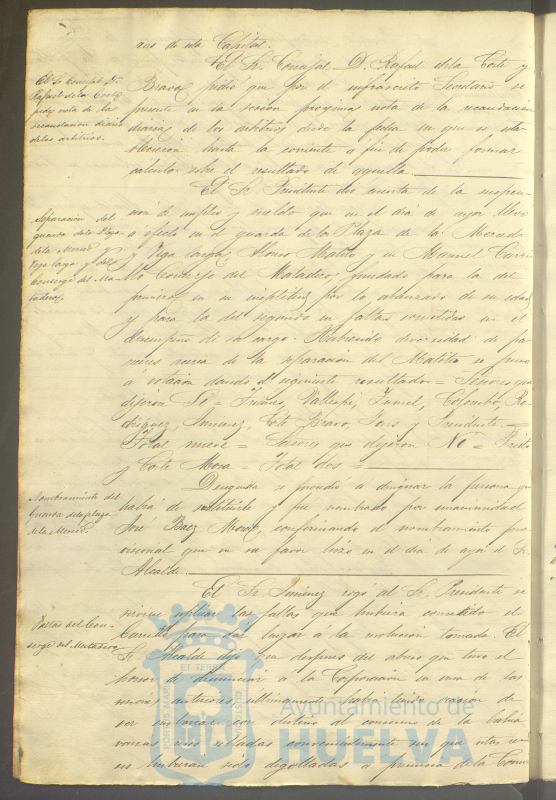 ros de esta Capital.
El Sr. Concejal D. Rafael de la Corte y
Bravo, pidió que por el infrascrito Secretario se
presente en la sesion proxima nota de la recaudacion
diaria de los arbitrios desde la fecha en que se esta-
blecieron hasta la corriente a fin de poder formar
calculos sobre el resultado de aquella.
El Sr. Concejal D.
Rafael de la Corte
pide nota de la
recaudacion diaria
de los arbitrios.
El Sr. Presidente dio cuenta de la suspen-
sion de empleo y sueldo que en el dia de ayer llevó
a efecto en el guarda de la Plaza de la Merced
y Vega larga, Alonso Matito y en Manuel Carri-
llo Conserje del Matadero, fundado para la del
primero en su ineptitud por lo abanzado de su edad
y para la del segundo en faltas cometidas en el
desempeño de su cargo. Habiendo diversidad de pa-
receres acerca de la separacion del Matito se puso
á votacion dando el siguiente resultado = Señores que
dijeron Sí = Vallespi, Colombo, Ro-
driguez, Jimenez, Corte Bravo, y Presidente =
Total nueve = Señores que dijeron No = Prieto
y Corte Mora = Total dos =
Separacion del
guarda de la Plaza
de la Merced y
Vega larga y del
Conserge del Ma-
tadero.
Despues se procedió a designar la persona que
habia de sustituirle y fue nombrado por unanimidad
José Baez confirmando el nombramiento pro-
visional que en su favor hizo en el dia de ayer el Sr.
Alcalde.
Nombramiento del
Guarda de la plaza
de la Merced.
El Sr. Jimenez rogó al Sr. Presidente se
sirviese esplicar las faltas que hubiera cometido el
Carrillo para dar lugar a la medida tomada. El
Sr. Alcalde dijo que despues del abuso que tuvo el
honor de denunciar a la Corporacion en una de las
sesiones anteriores, ultimamente habia sido ocasion de
ser embarcadas con destino al consumo de la
varias reses selladas convenientemente sin que estas re-
ses hubieran sido degolladas a presencia de la Comi-
Faltas del Con-
serge del Matadero
Ayuntamiento de
HUELVA